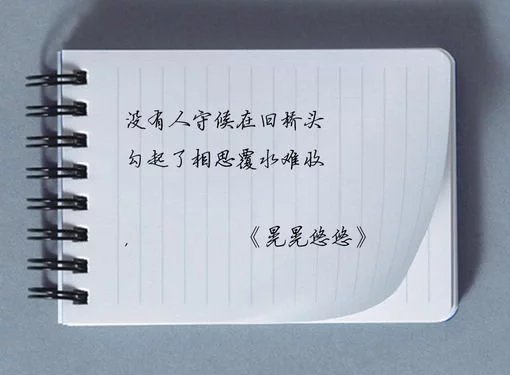 没有人守候在旧桥头
勾起了相思覆水难收
.《晃晃悠悠》